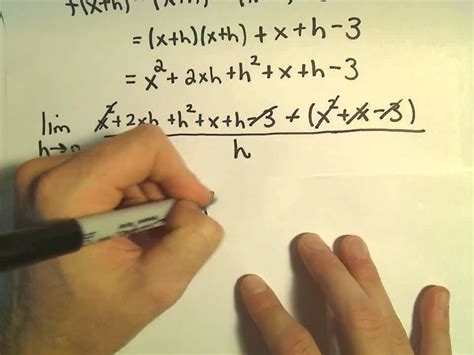 f(x+h)
= (x+h)(x+h) + x + h - 3
= x² + 2xh + h² + x + h - 3
lim x² + 2xh + h² + x + h - 3 - (x² + x - 3)
h→ h